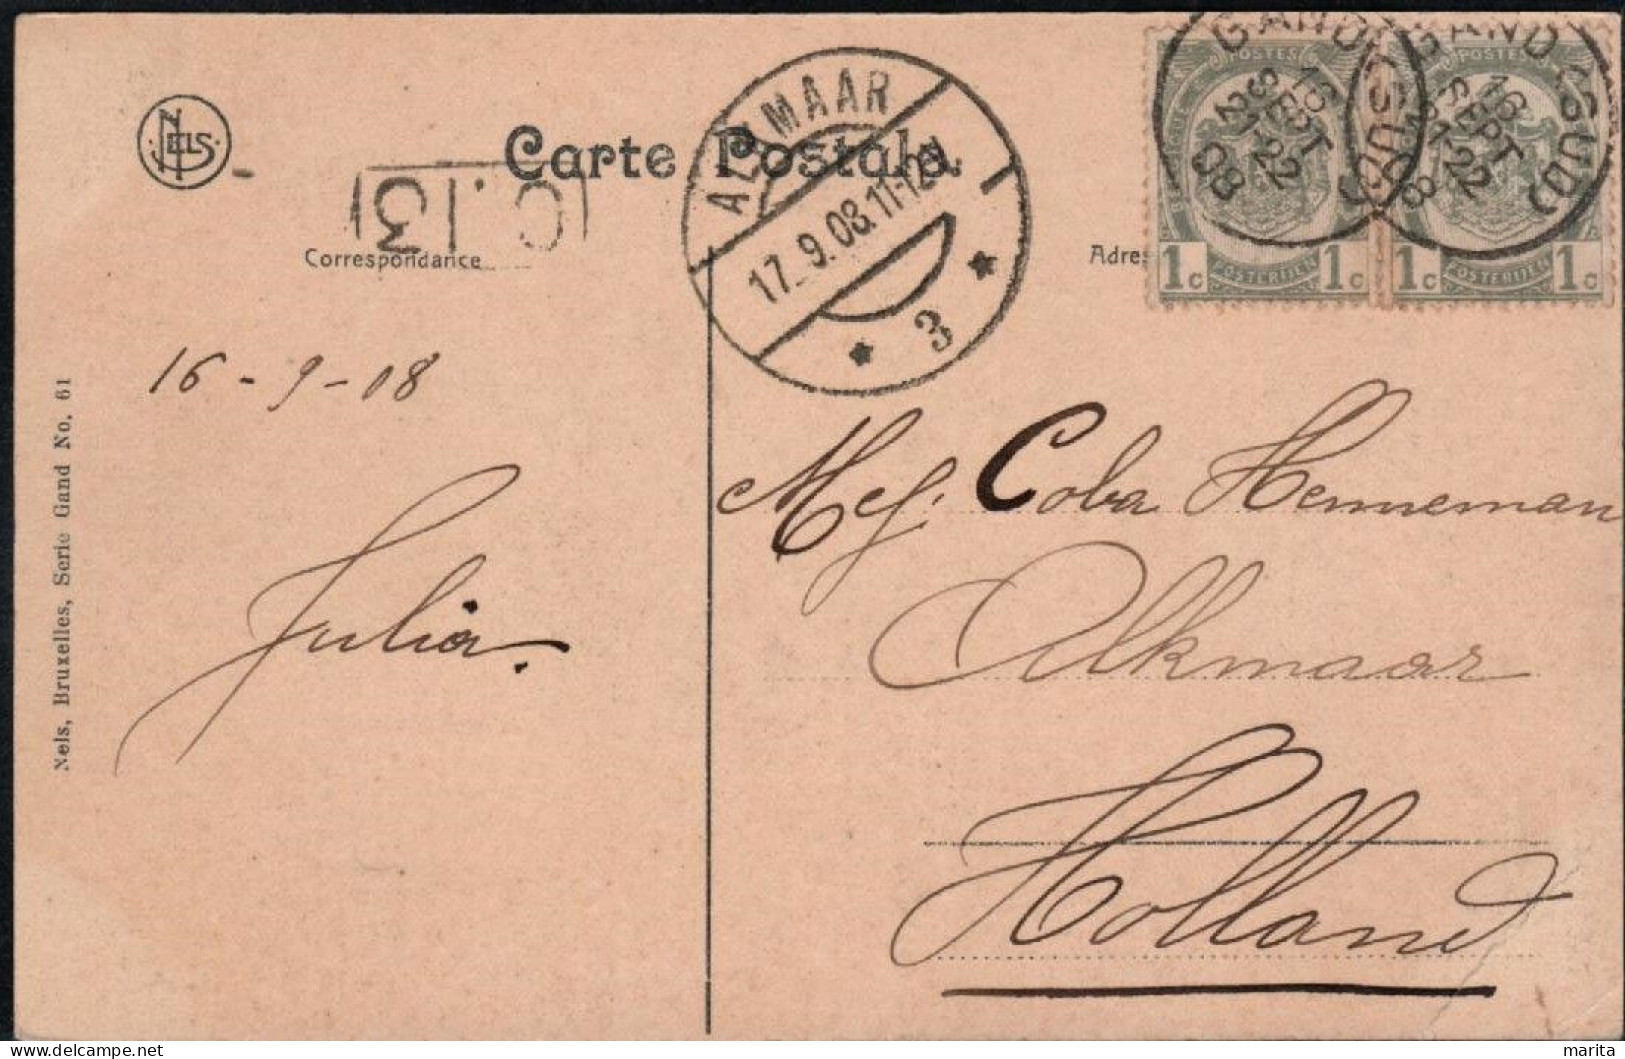 NELS
Carte Postale.
C.13
Correspondance
ALKMAAR
17.9.08.11-12V
3
GAND (SUD)
16
SEPT
21-22
08
GAND (SUD)
16
SEPT
21-22
8
POSTES
1c POSTERIJEN 1c
POSTES
1c POSTERIJEN 1c
Adres
16-9-08
Julia.
Mej. Coba Henneman
Alkmaar
Holland
Nels, Bruxelles, Serie Gand No. 61
marita